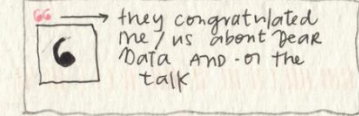 66 → they congratulated
me/us about Dear
Data AND-or the
6 talk